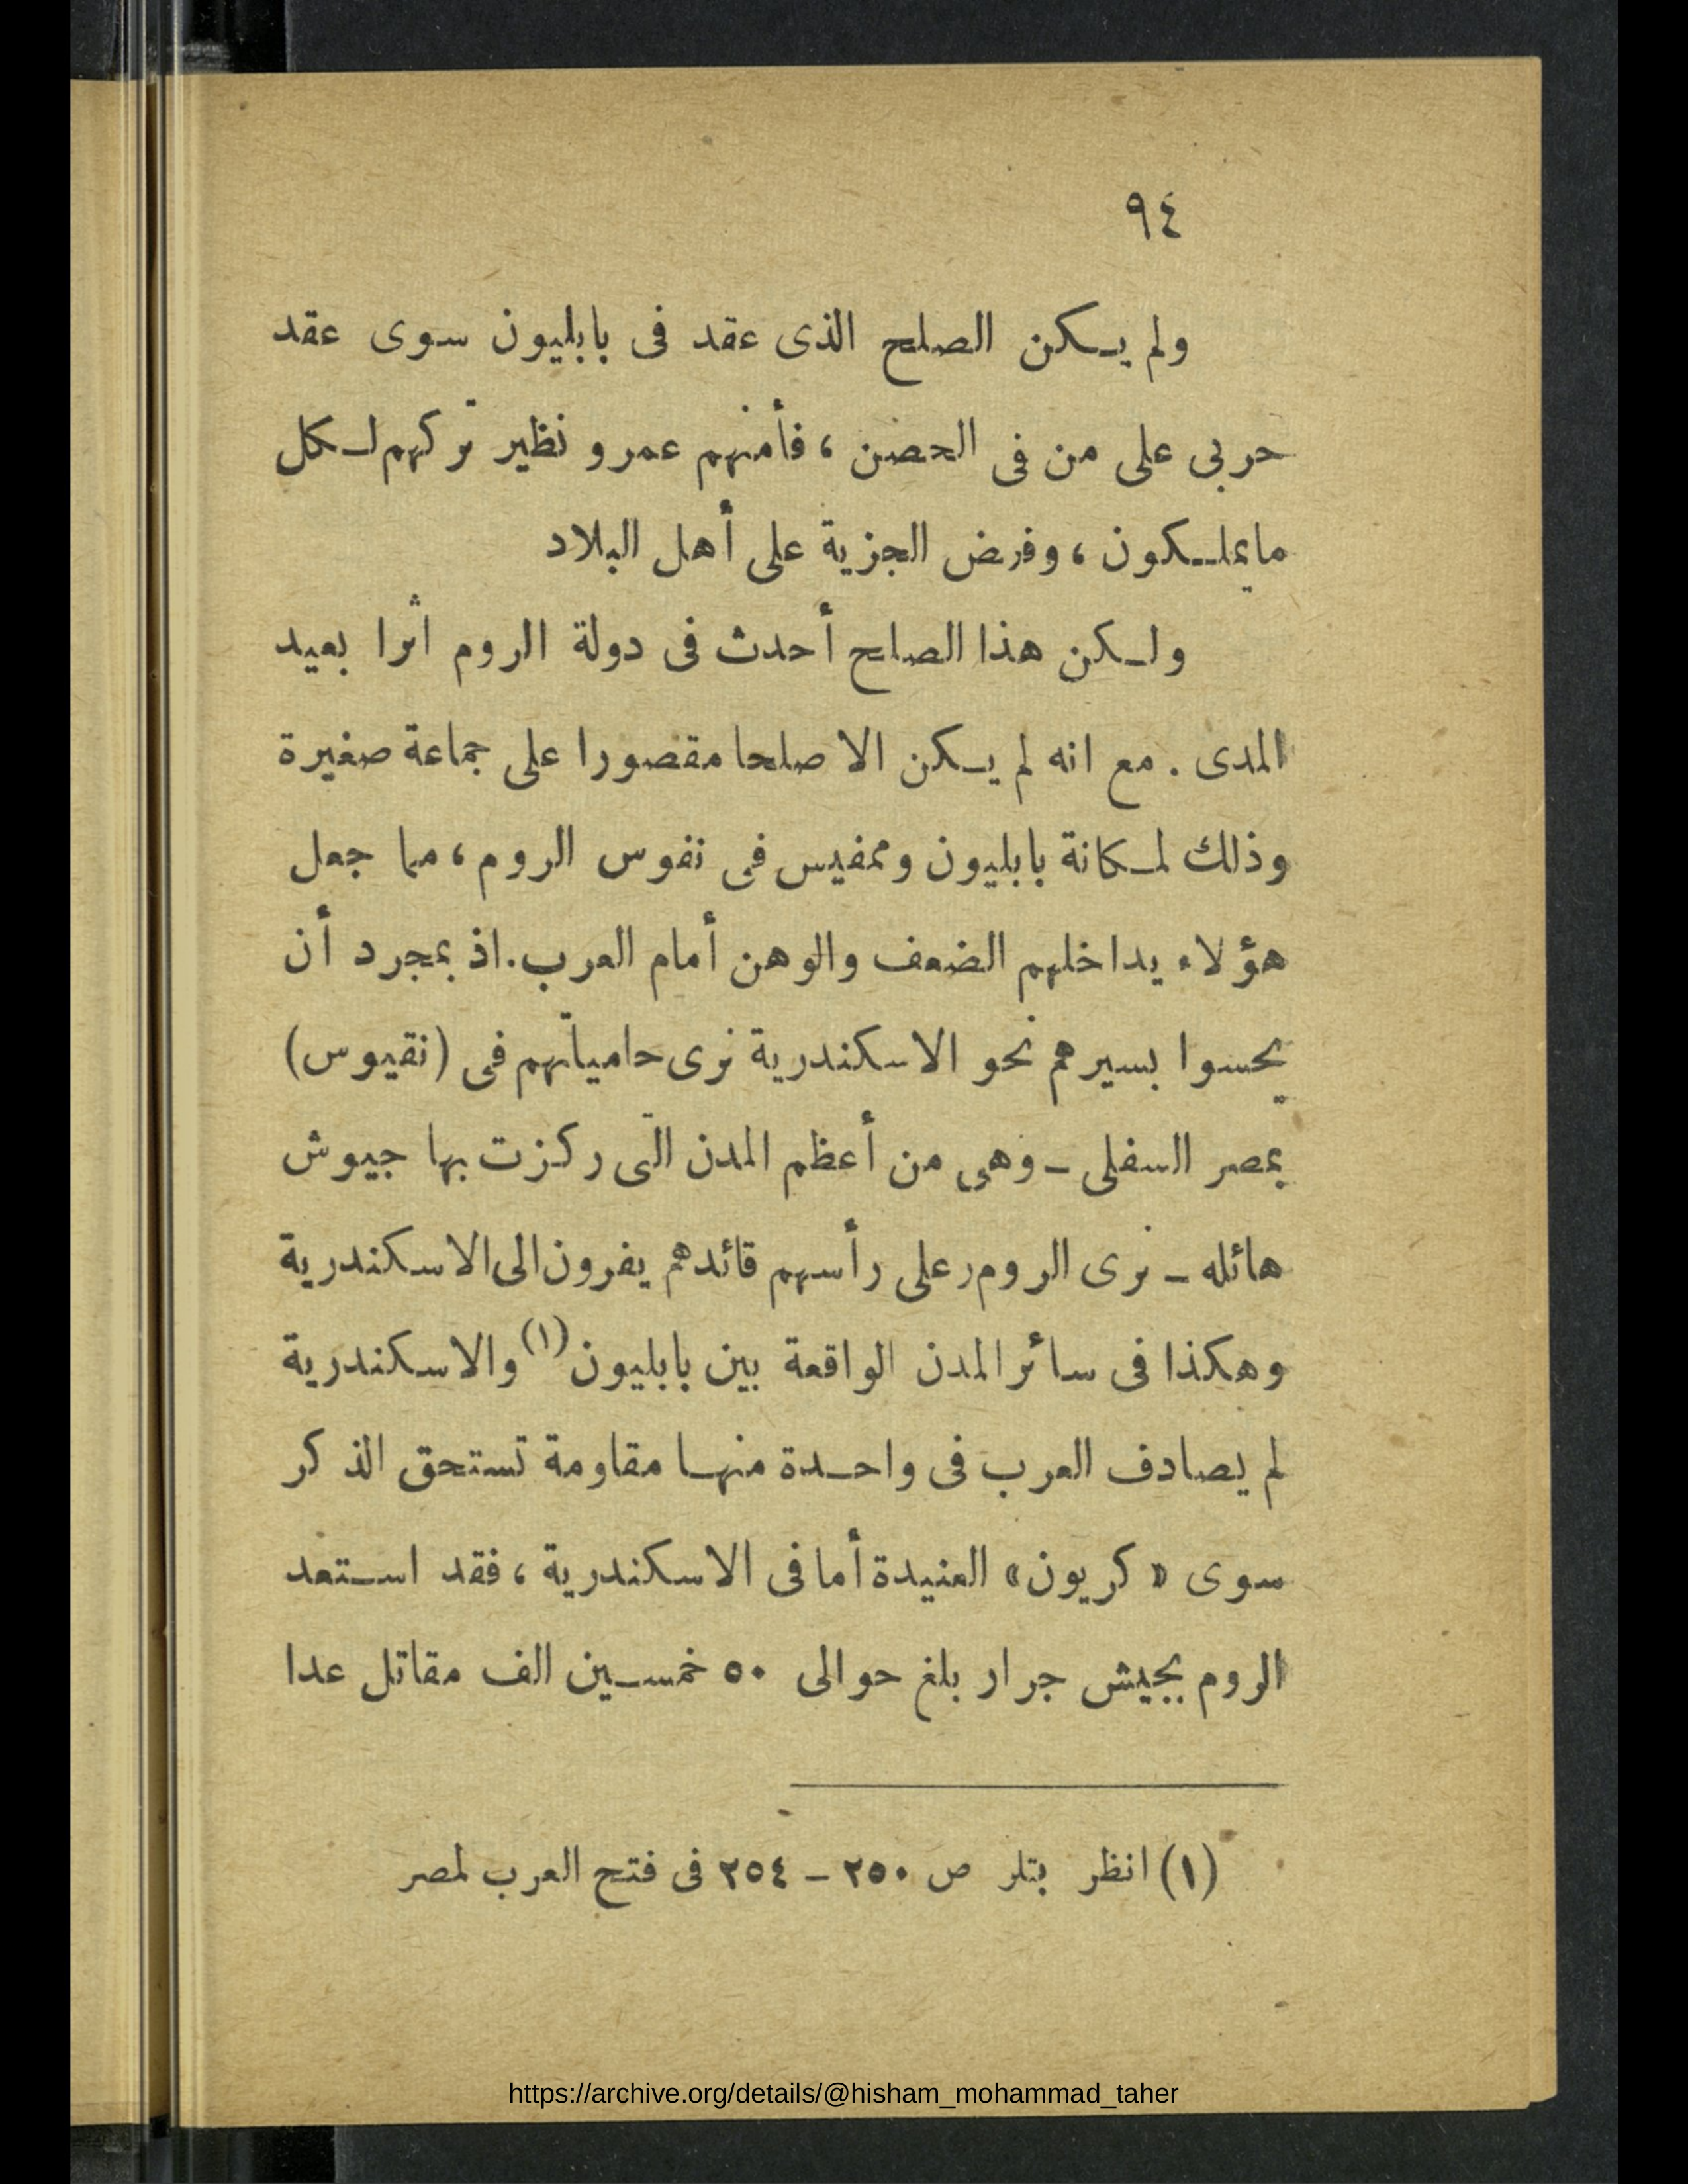 ٩٤
ولم يكن الصلح الذى عقد فى بابليون سوى عقد
حربى على من فى الحصن ، فأمنهم عمرو نظير تركهم لكل
مايملكون ، وفرض الجزية على أهل البلاد
ولكن هذا الصلح أحدث فى دولة الروم أثرا بعيد
المدى . مع انه لم يكن الا صلحا مقصورا على جماعة صغيرة
وذلك لمكانة بابليون وممفيس فى نفوس الروم ، مما جعل
هؤلاء يداخلهم الضعف والوهن أمام العرب . اذ بمجرد أن
يحسوا بسيرهم نحو الاسكندرية نرى حامياتهم فى (نقيوس)
بمصر السفلى ـ وهى من أعظم المدن التى ركزت بها جيوش
هائله ـ نرى الروم وعلى رأسهم قائدهم يفرون الى الاسكندرية
وهكذا فى سائر المدن الواقعة بين بابليون (١) والاسكندرية
لم يصادف العرب فى واحدة منها مقاومة تستحق الذكر
سوى « كريون » العنيدة أما فى الاسكندرية ، فقد استعد
الروم بجيش جرار بلغ حوالى ٥٠ خمسين الف مقاتل عدا
(١) انظر بتلر ص ٢٥٠ ـ ٢٥٤ فى فتح العرب لمصر
https://archive.org/details/@hisham_mohammad_taher